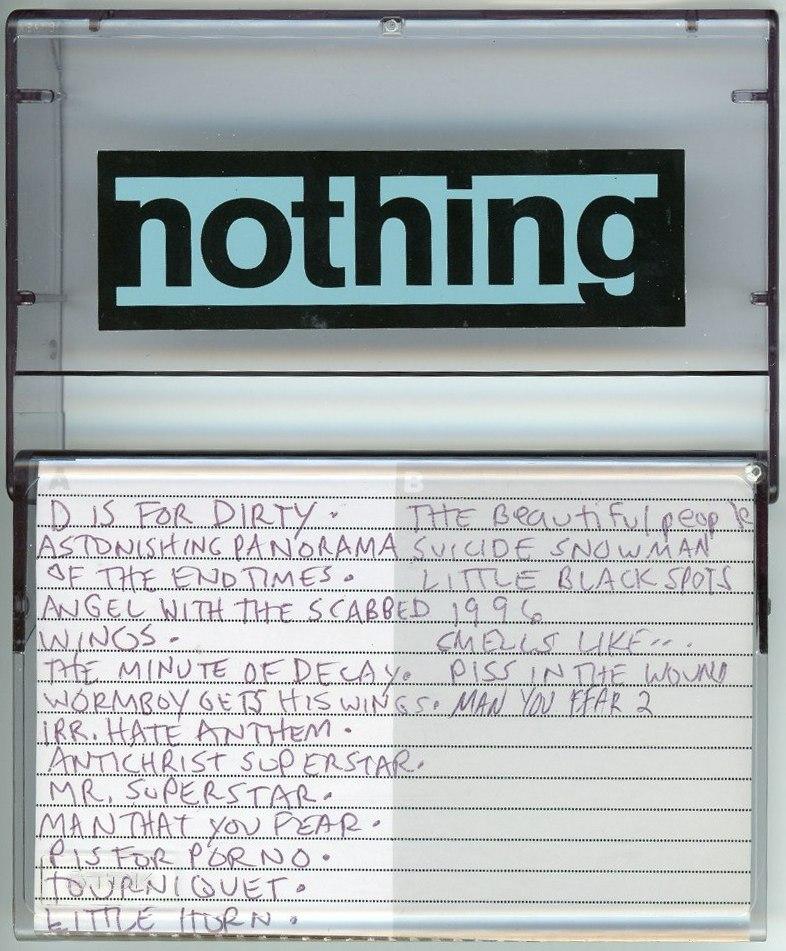 nothing
A
D IS FOR DIRTY.
ASTONISHING PANORAMA
OF THE END TIMES.
ANGEL WITH THE SCABBED
WINGS.
THE MINUTE OF DECAY.
WORMBOY GETS HIS WINGS.
IRR. HATE ANTHEM.
ANTICHRIST SUPERSTAR.
MR. SUPERSTAR.
MAN THAT YOU FEAR.
P IS FOR PORNO.
TOURNIQUET.
LITTLE HORN.
B
THE Beautiful people
SUICIDE SNOWMAN
LITTLE BLACK SPOTS
1996
SMELLS LIKE...
PISS IN THE WOUND
MAN YOU FEAR 2